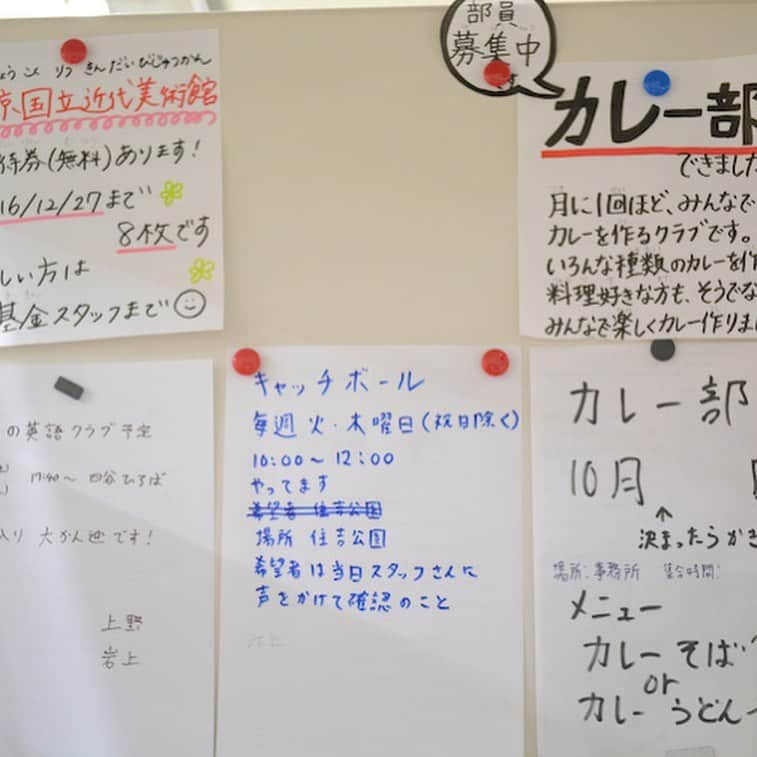 ょうこくりつきんだいびじゅつかん
京国立近代美術館
待券(無料)あります!
16/12/27まで
8枚です
しい方は
基金スタッフまで
部員
募集中
です
カレー部
できました
月に1回ほど、みんなで
カレーを作るクラブです。
いろんな種類のカレーを作
料理好きな方も、そうでな
みんなで楽しくカレー作りまし
の英語クラブ予定
17:40〜 四谷ひろば
入り 大かん迎です!
上野
岩上
キャッチボール
毎週 火・木曜日(祝日除く)
10:00〜12:00
やってます
希望者 住吉公園
場所 住吉公園
希望者は当日スタッフさんに
声をかけて確認のこと
カレー部
10月
↑
決まったらかき
場所:事務所 集合時間:
メニュー
カレーそば
or
カレーうどん